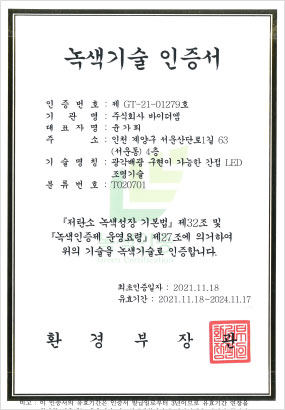 녹색기술 인증서
인 증 번 호 : 제 GT-21-01279호
기 관 명 : 주식회사 바이더엠
대 표 자 명 : 윤가희
주 소 : 인천 계양구 서운산단로1길 63
(서운동) 4층
기 술 명 칭 : 광각배광 구현이 가능한 간접 LED
조명기술
분 류 번 호 : T020701
『저탄소 녹색성장 기본법』제32조 및
『녹색인증제 운영요령』제27조에 의거하여
위의 기술을 녹색기술로 인증합니다.
최초인증일자 : 2021.11.18
유효기간 : 2021.11.18~2024.11.17
환 경 부 장 관
비고 : 이 인증서의 유효기간은 인증서 발급일로부터 3년이므로 유효기간 연장을